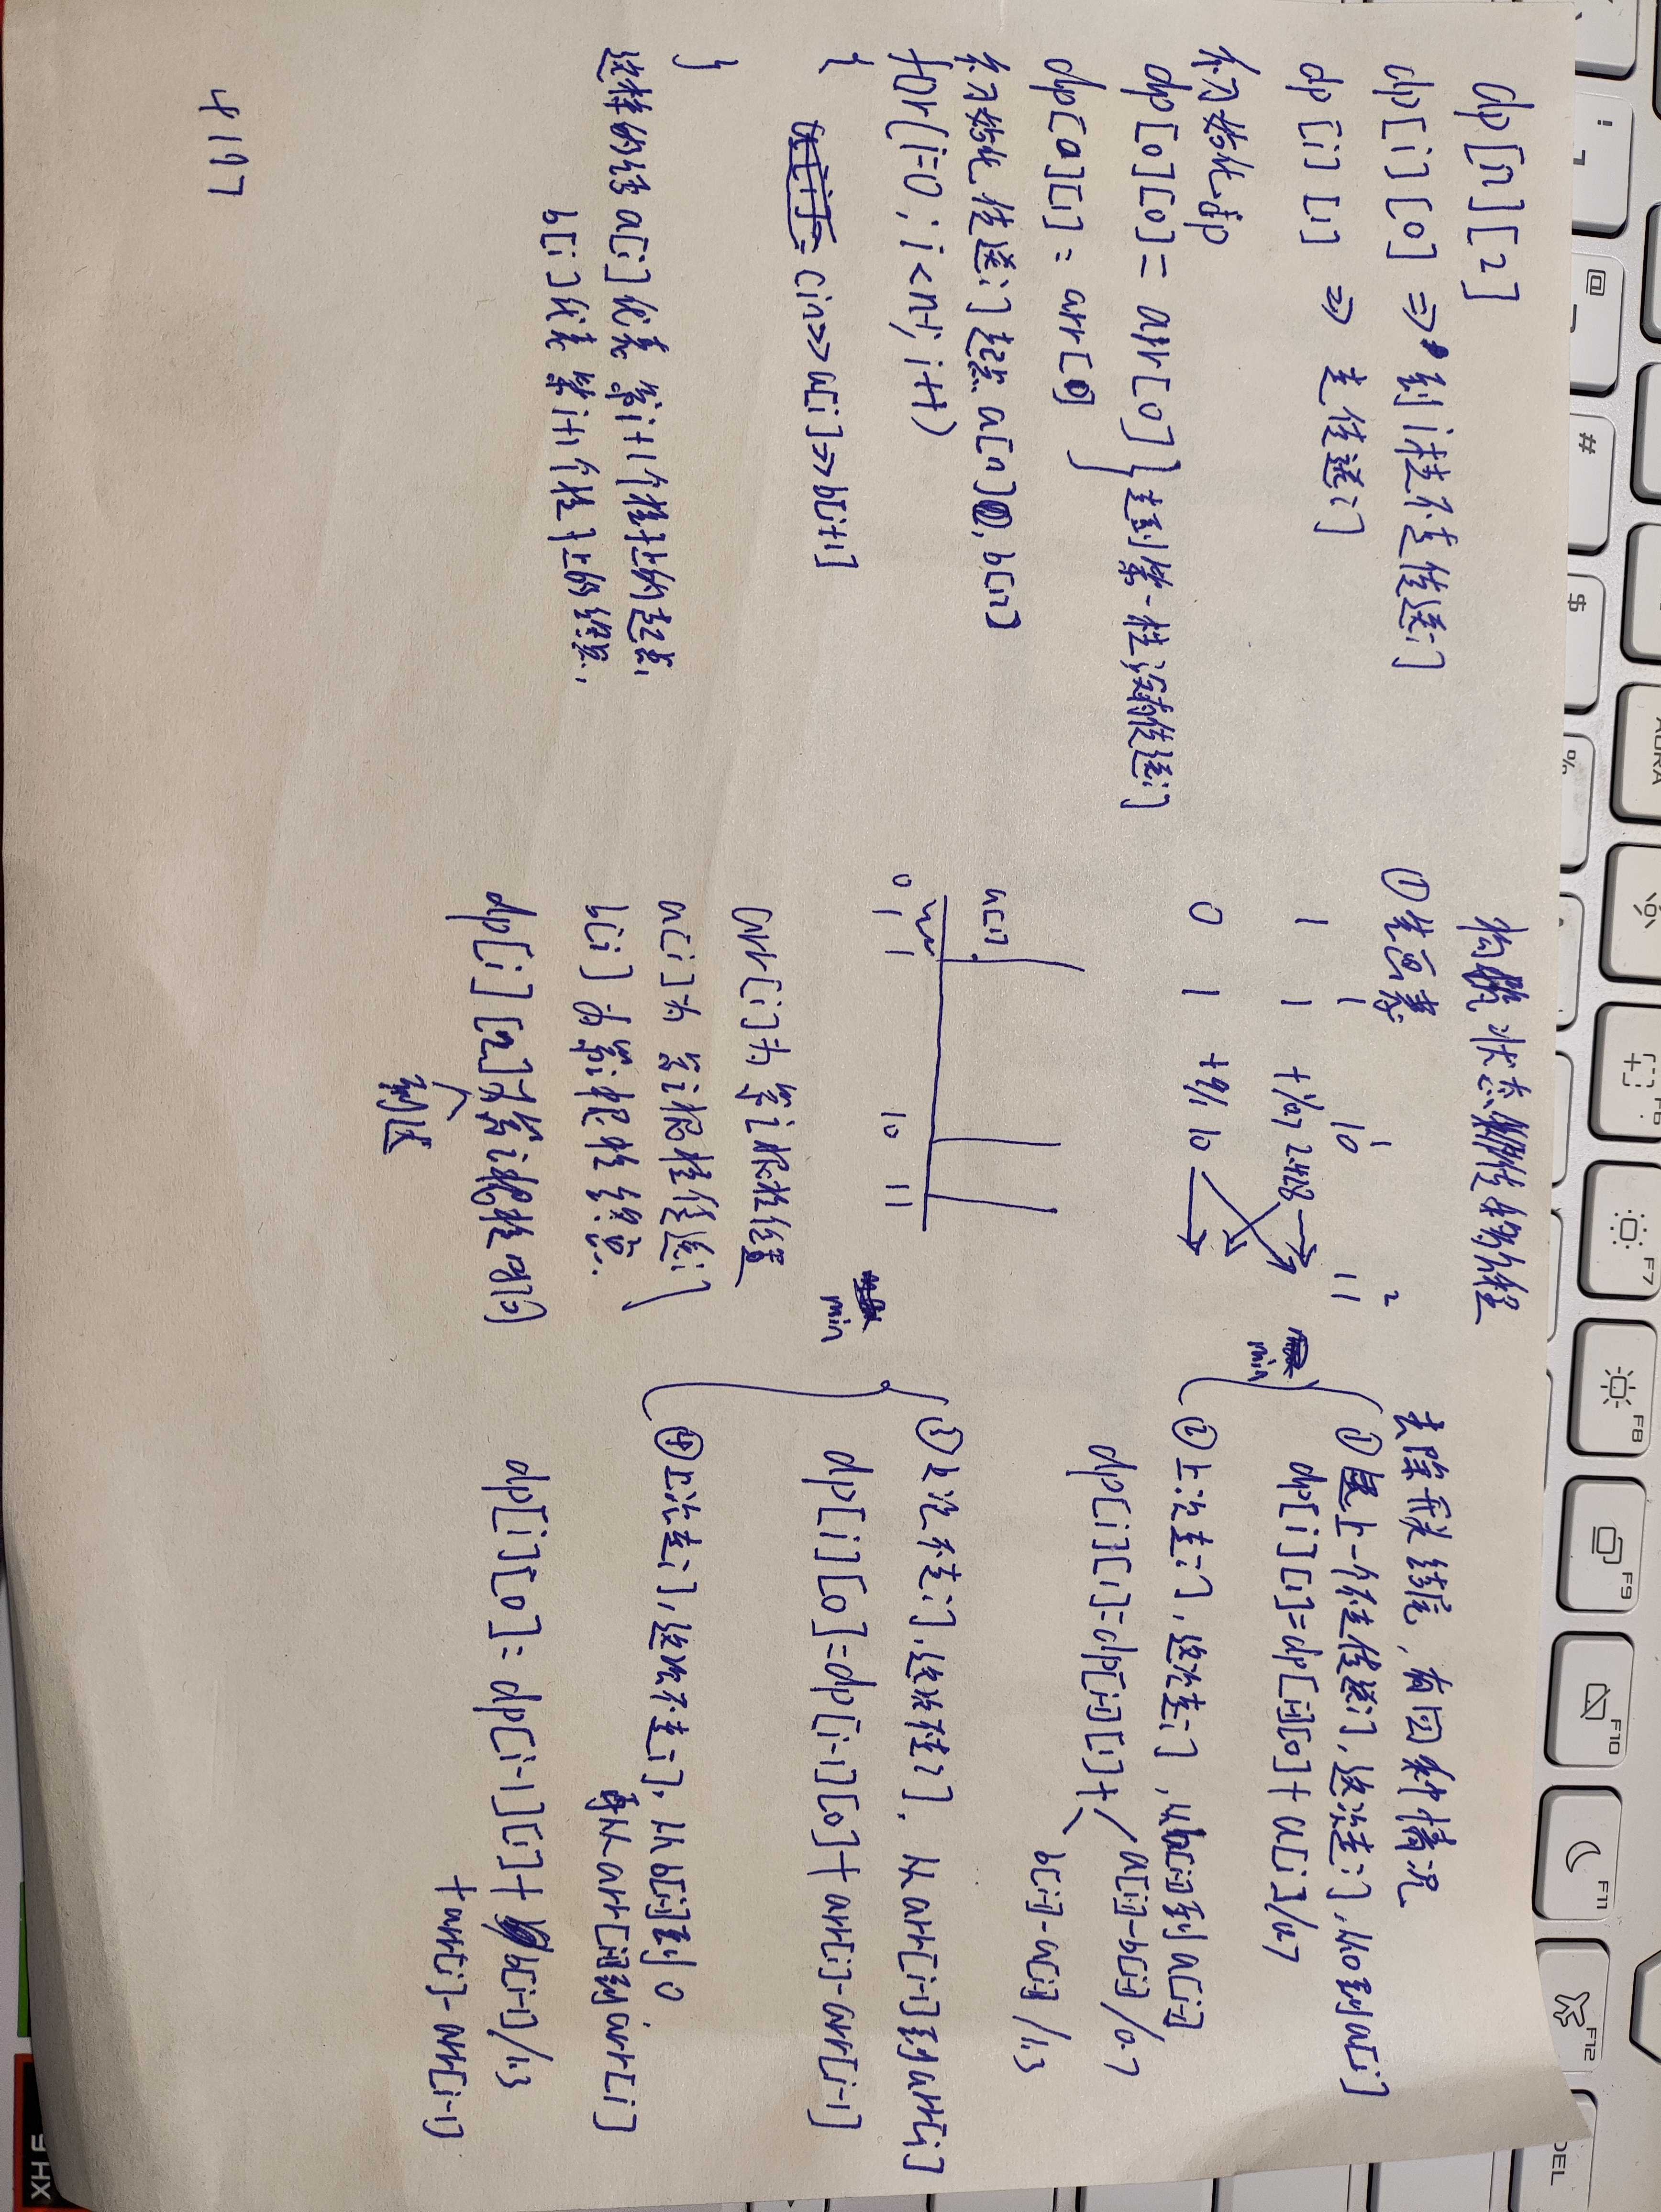 dp[n][2]
dp[i][0] ⇒ 到i柱不走传送门
dp[i][1] ⇒ 走传送门
初始化dp
dp[0][0] = arr[0]
dp[0][1] = arr[0]
走到第一柱没有传送门
初始化传送门起点 a[n], b[n]
for(i=0; i<n-1; i++)
{
cin>>a[i]>>b[i+1]
}
这样的话 a[i]代表 第i+1个柱上的起点
b[i]代表 第i+1个柱上的终点.
4197
状态转移
①先画表
1 10 2
1 1 +1/0.7 2.428 11
0 1 +9/1 10
a[i]
0 1 10 11
arr[i]为第i根柱位置
a[i]为第i根柱传送门
b[i]为第i根柱终点.
dp[i][2]为到达第i根柱时间
去除开头结尾, 有四种情况
①上一个不走传送门, 这次走门, 从0到a[i]
dp[i][1] = dp[i-1][0] + a[i]/0.7
min
②上次走门, 这次走门, 从b[i-1]到a[i-1]
dp[i][1] = dp[i-1][1] +
a[i-1]-b[i-1]/0.7
b[i-1]-a[i-1]/1.3
③上次不走门, 这次
从arr[i-1]到arr[i]
dp[i][0] = dp[i-1][0] + arr[i] - arr[i-1]
min
④上次走门, 这次不走门, 从b[i-1]到0
再从arr[i-1]到arr[i]
dp[i][0] = dp[i-1][1] + b[i-1]/1.3
+arr[i] - arr[i-1]
@
#
$
%
F7
F8
F9
F10
F11
F12
DEL